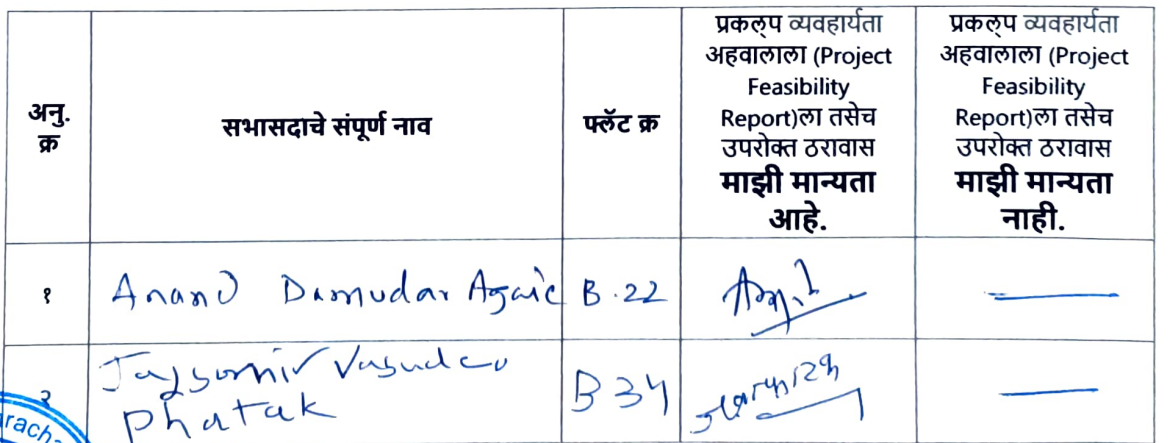 अनु. क्र
सभासदाचे संपूर्ण नाव
फ्लॅट क्र
प्रकल्प व्यवहार्यता
अहवालाला (Project
Feasibility
Report)ला तसेच
उपरोक्त ठरावास
माझी मान्यता
आहे.
प्रकल्प व्यवहार्यता
अहवालाला (Project
Feasibility
Report)ला तसेच
उपरोक्त ठरावास
माझी मान्यता
नाही.
१ Anand Damudar B.22
२ Vasudeo B 34
Phatak